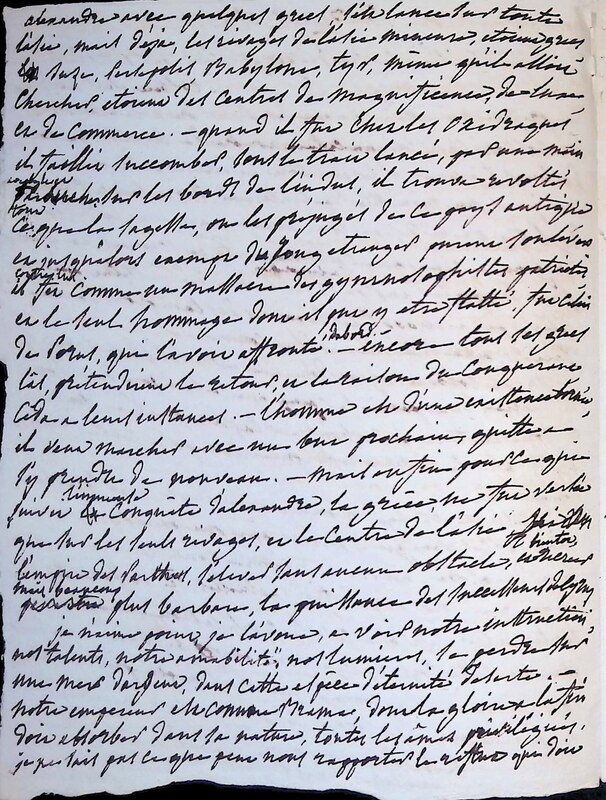 alexandre avec quelques grecs, s'est lancé sur toute
l'asie, mais déja, les rivages de l'asie mineure, etoient grecs
suze, persepolis Babylone, tyr, même qu'il alloit
chercher, etoient des centres de magnificence, de luxe
et de commerce. – quand il fut chez les Oxidraques
il faillit succomber, sous le trait lancé, par une main
sur les bords de l'indus, il trouva revoltés
tout
ce que la sagesse, ou les préjugés de ce pays antique
et jusqu'alors exempt de joug etranger, purent soulever
il fit comme un massacre des gymnosophistes patriotes
et le seul hommage dont il put y etre flatté, fut celui
de Porus, qui l'avoit affronté d'abord. – encore tous les grecs
las, pretendirent le retour, et la raison du Conquerant
céda a leurs instances. – l'homme est d'une existence bornée
il veut marcher avec un but prochain, quitte a
s'y prendre de nouveau. – mais enfin pour ce qui
l'immense
suivit la Conquête d'alexandre, la grèce, ne fut versée
que sur les seuls rivages, et le Centre de l'asie
bientot
l'empire des Parthes, s'eleva sans aucun obstacle,
mais beaucoup
plus barbare, la puissance des successeurs de Cyrus
je n'aime point, je l'avoue, a voir notre instruction,
nos talents, notre amabilité, nos lumieres, se perdre sur
une mer d'azur, dans cette espèce d'éternité deserte. –
notre empereur est comme Brama, dont la gloire a la fin
doit absorber dans sa nature, toutes les âmes privilégiées.
je ne sais pas ce que peut nous rapporter le qui doit